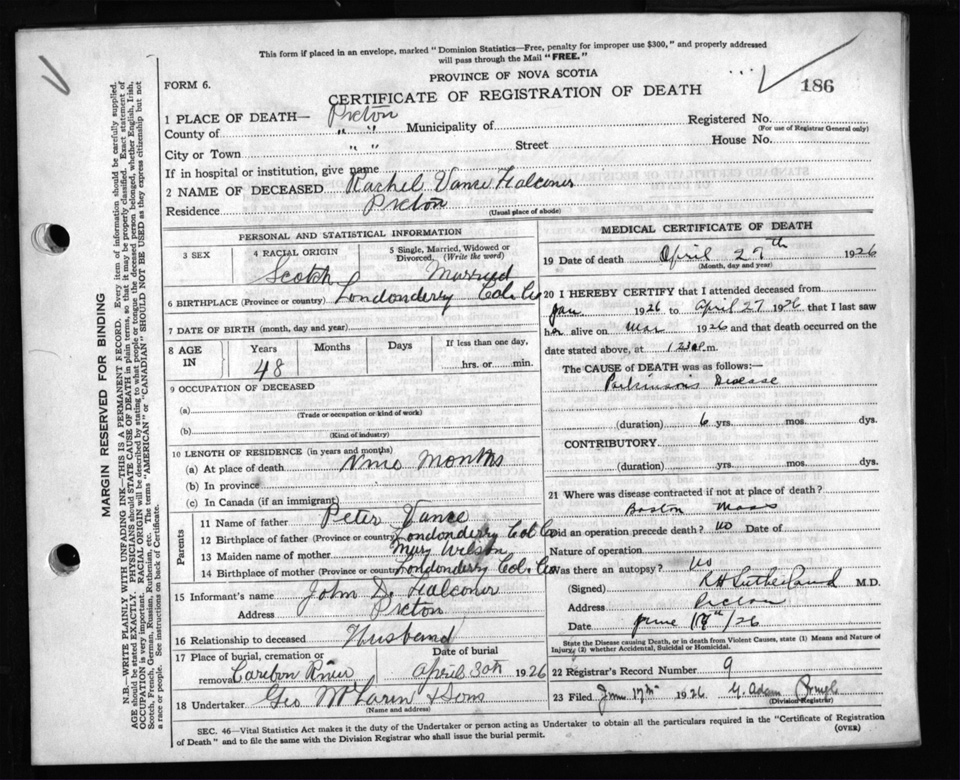 This form if placed in an envelope, marked "Dominion Statistics—Free, penalty for improper use $300," and properly addressed
will pass through the Mail "FREE."
PROVINCE OF NOVA SCOTIA
FORM 6.
CERTIFICATE OF REGISTRATION OF DEATH
186
1 PLACE OF DEATH— Pictou
Registered No.
(For use of Registrar General only)
County of " " Municipality of
City or Town " " Street House No.
If in hospital or institution, give name
2 NAME OF DECEASED Rachel Vance Falconer
Residence Pictou
(Usual place of abode)
PERSONAL AND STATISTICAL INFORMATION
3 SEX
4 RACIAL ORIGIN
Scotch
5 Single, Married, Widowed or
Divorced. (Write the word)
Married
6 BIRTHPLACE (Province or country) Londonderry Col. Co
7 DATE OF BIRTH (month, day and year)
8 AGE IN
Years 48
Months
Days
If less than one day,
hrs. or min.
9 OCCUPATION OF DECEASED
(a)
(Trade or occupation or kind of work)
(b)
(Kind of industry)
10 LENGTH OF RESIDENCE (in years and months)
(a) At place of death months
(b) In province
(c) In Canada (if an immigrant)
Parents
11 Name of father Peter Vance
12 Birthplace of father (Province or country) Londonderry Col Co
13 Maiden name of mother Mary Wilson
14 Birthplace of mother (Province or country) Londonderry Col. Co
15 Informant's name John D. Falconer
Address Pictou
16 Relationship to deceased Husband
17 Place of burial, cremation or
removal Caribou River
Date of burial
April 30th 1926
18 Undertaker Geo McLaren & Sons
(Name and address)
MEDICAL CERTIFICATE OF DEATH
19 Date of death April 27th 1926
(Month, day and year)
20 I HEREBY CERTIFY that I attended deceased from
Jan 1926 to April 27 1926 that I last saw
her alive on Mar 1926 and that death occurred on the
date stated above, at m.
The CAUSE of DEATH was as follows:—
Parkinson's Disease
(duration) 6 yrs. mos. dys.
CONTRIBUTORY
(duration) yrs. mos. dys.
21 Where was disease contracted if not at place of death?
Boston Mass
Did an operation precede death? no Date of
Nature of operation
Was there an autopsy? no
(Signed) Sutherland M.D.
Address Pictou
Date June /26
State the Disease causing Death, or in death from Violent Causes, state (1) Means and Nature of
Injury; (2) whether Accidental, Suicidal or Homicidal.
22 Registrar's Record Number 9
23 Filed June 17th 1926 Adam
(Division Registrar)
SEC. 46—Vital Statistics Act makes it the duty of the Undertaker or person acting as Undertaker to obtain all the particulars required in the "Certificate of Registration
of Death" and to file the same with the Division Registrar who shall issue the burial permit.
(OVER)
MARGIN RESERVED FOR BINDING
N.B.—WRITE PLAINLY WITH UNFADING INK—THIS IS A PERMANENT RECORD. Every item of information should be carefully supplied.
AGE should be stated EXACTLY. PHYSICIANS should STATE CAUSE OF DEATH in plain terms, so that it may be properly classified. Exact statement of
OCCUPATION is very important. RACIAL ORIGIN will be described by stating to what people or tongue the deceased person belonged, whether English, Irish,
Scotch, French, German, Russian, Ruthenian, etc. The terms "AMERICAN" or "CANADIAN" SHOULD NOT BE USED as they express citizenship but not
a race or people. See instructions on back of Certificate.